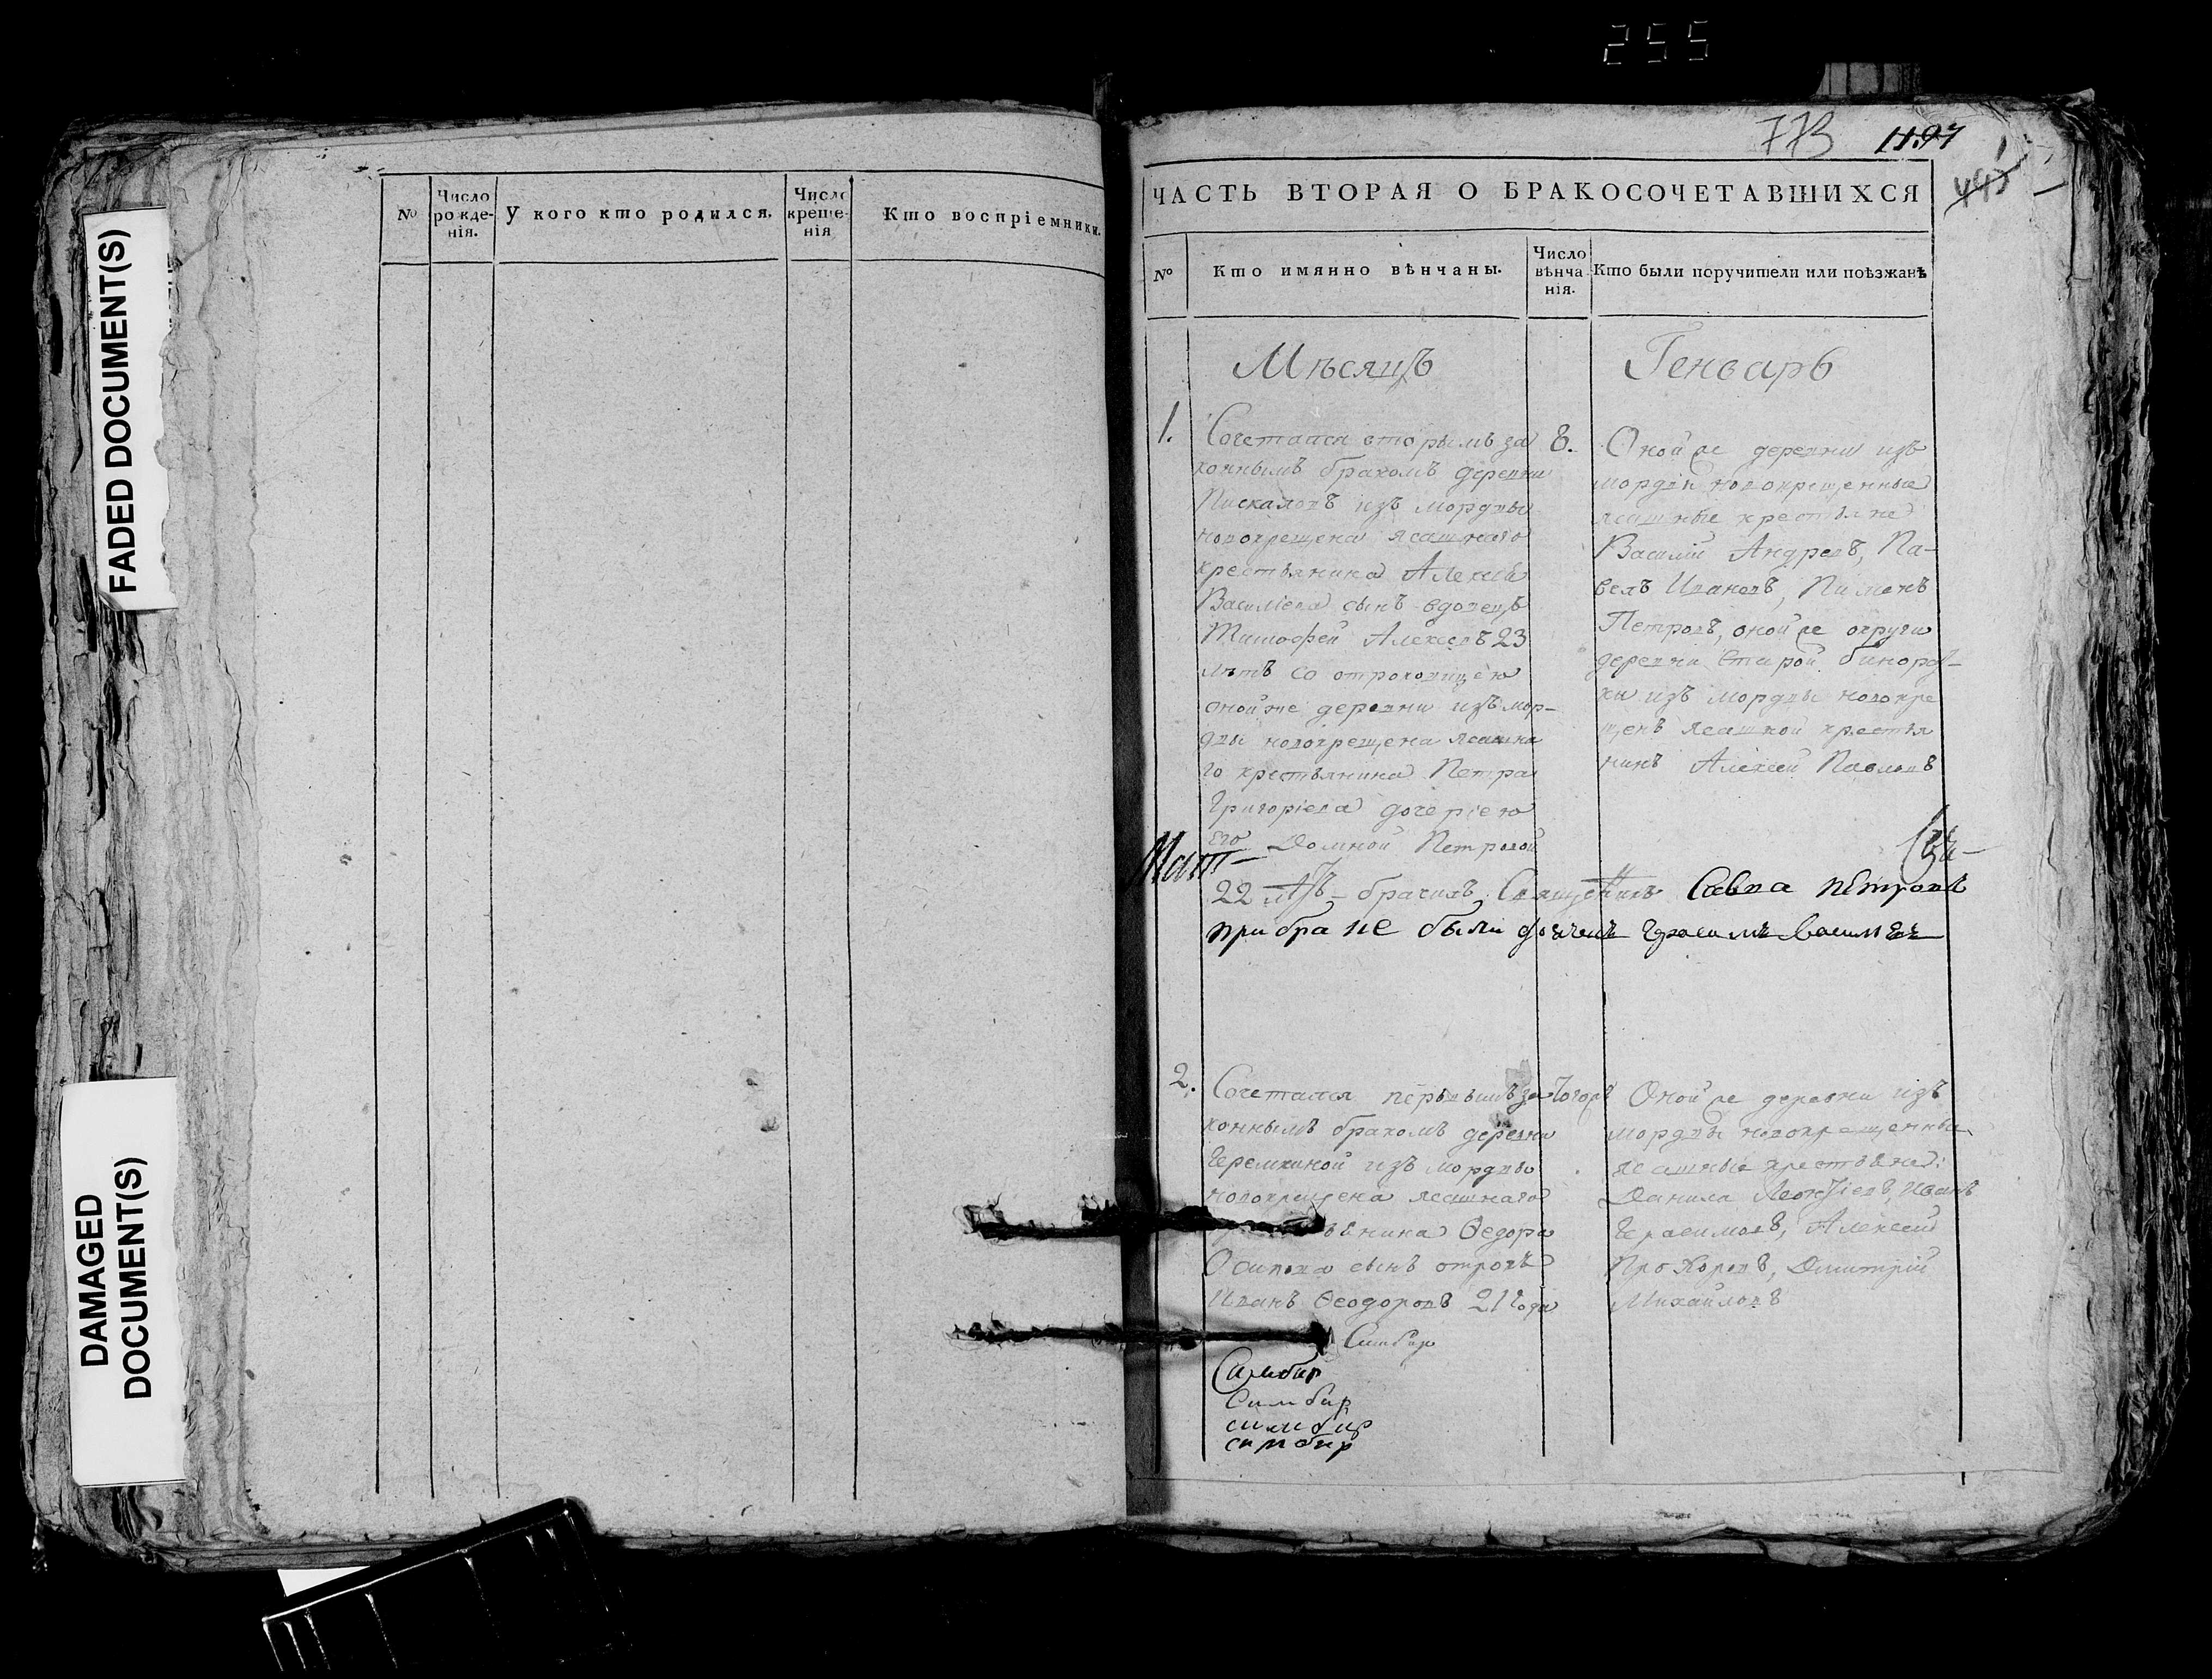 255
FADED DOCUMENT(S)
DAMAGED
DOCUMENT(S)
№
Число
рожде-
нія.
У кого кто родился.
Число
креще-
нія
Кто воспріемники.
773 1197
ЧАСТЬ ВТОРАЯ О БРАКОСОЧЕТАВШИХСЯ
№
Кто имянно вѣнчаны.
Число
вѣнча-
нія.
Кто были поручители или поѣзжанѣ
Мѣсяцъ
Генварь
1.
Сочетался вторымъ за
коннымъ бракомъ деревни
Пискаловъ изъ мордвы
новокрещена ясашнаго
крестьянина Алексѣя
Василіева сынъ вдовецъ
Тимофей Алексѣевъ 23
лѣтъ со отроковицею
оной же деревни изъ мор-
двы новокрещена ясашна
го крестьянина Петра
Григоріева дочеріею
его Домной Петровой
8.
Оной же деревни изъ
мордвы новокрещенные
ясашные крестьяне
Василій Андреевъ, Па-
велъ Ивановъ, Пименъ
Петровъ, оной же округи
деревни Старой
изъ мордвы новокре
щенъ ясашной крестья
нинъ Алексей Павловъ
22 лѣтъ - брачилъ Священникъ Савва Петровъ
при бра не были дьячекъ Герасимъ Васильевъ
2.
Сочетался первымъ за
коннымъ бракомъ деревни
Черемкиной изъ мордвы
новокрещена ясашнаго
Ѳедора
Осипова сынъ отрокъ
Иванъ Ѳеодоровъ 21 года
Оной же деревни изъ
мордвы новокрещенные
ясашные крестьяне:
Данила Леонтіевъ, Иванъ
Герасимовъ, Алексей
Прохоровъ, Димитрій
Михайловъ
Симбир
Симбир
Симбир
симбир
симбир